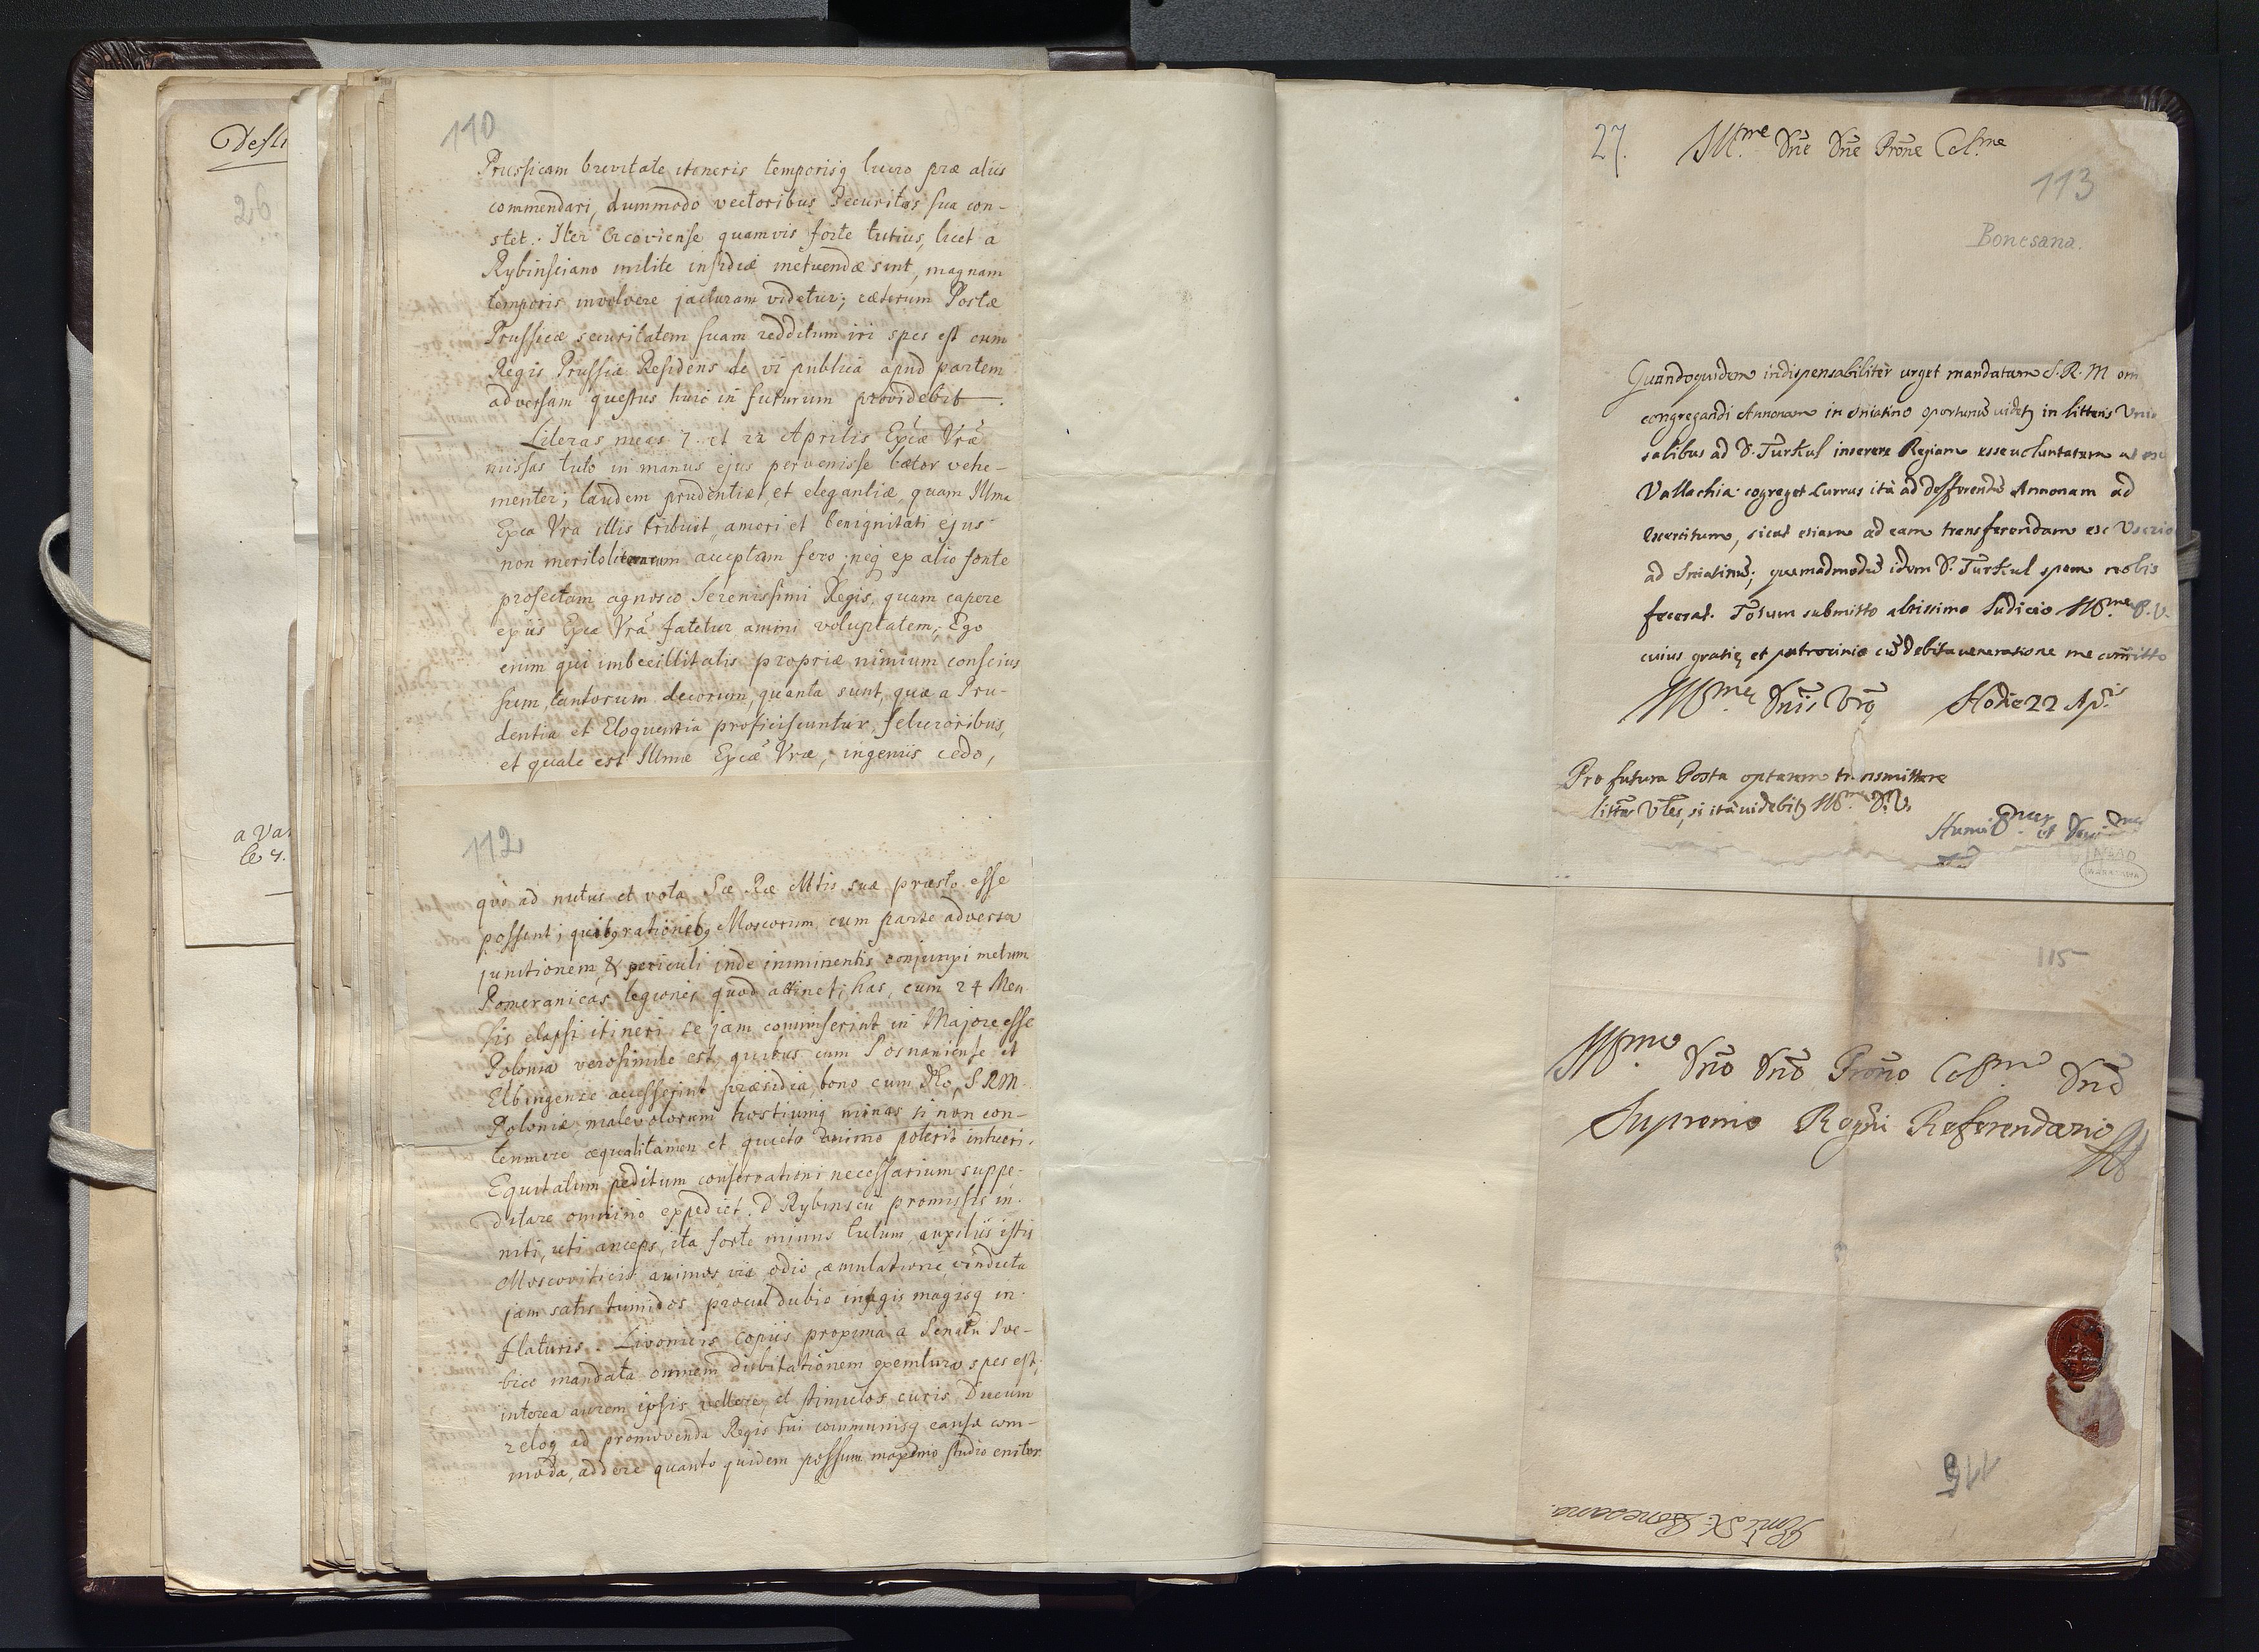 Desti
26
a Var
le 4.
110
Prussicam brevitate itineris temporisq lucro præ aliis
commendari, dummodo vectoribus securitas sua con-
stet. Iter Cracoviense quamvis forte tutius, licet a
Rybinsciano milite insidiæ metuendæ sint, magnam
temporis involvere jacturam videtur; cæterum Postæ
Prussicæ securitatem suam redditum iri spes est cum
Regis Prussiæ Residens de vi publica apud partem
adversam questus huic in futurum providebit.
Literas meas 7. et 22 Aprilis Excæ Vræ
missas tuto in manus ejus pervenisse lætor vehe-
menter; laudem prudentiæ, et elegantiæ, quam Illma
Exca Vra illis tribuit, amori et benignitati ejus
non merito acceptam fero; neq ex alio fonte
profectam agnosco Serenissimi Regis, quam capere
ex iis Exca Vra fatetur animi voluptatem; Ego
enim qui imbecillitatis propriæ nimium conscius
sum, tantorum decorum, quanta sunt, quæ a Pru-
dentia et Eloquentia proficiscuntur, felicioribus,
et quale est Illmæ Excæ Vræ, ingeniis cedo,
112
quò ad nutus et vota Sæ Ræ Mtis suæ præsto esse
possent; quibq rationibq Moscorum cum parte adversa
junctionem, & periculi inde imminentis conjungi metum
Pomeranicas legiones quod attinet; has, cum 24 Men
sis elapsi itineri se jam commiserint in Majore esse
Polonia verosimile est, quibus cum Posnaniense et
Elbingense accesserint præsidia, bono cum Deo, S R M
Poloniæ malevolorum hostiumq minas si non con-
temnere æquali tamen et quieto animo poterit intueri.
Equitatum peditum conservationi necessarium suppe-
ditare omnino expediet. D Rybinscii promissis in-
niti, uti anceps, ita forte minus tutum, auxiliis istis
Moscoviticis animos viæ odio, æmulatione, vindicta
jam satis tumidos procul dubio magis magisq in-
flaturis. Livonicis copiis proxima a Senatu Sve-
cico mandata omnem dubitationem exemtura spes est;
interea aurem ipsis vellere, et stimulos curis Ducum
zeloq ad promovenda Regis sui communisq causæ com-
moda, addere quanto quidem possum maximo studio enitor
27.
Illme Dne Dne Prone Colme
113
Bonesana.
Quandoquidem indispensabiliter urget mandatum S. R. M
congregandi Annonam in Sniatino oportunũ videtq in litteris
salibus ad D. Turkul inserere Regiam esse voluntatem
Vallachia cogreget Currus ità ad defferendũ Annonam ad
Exercitum, sicut etiam ad eam transferendam ex
ad Sniatinũ; quemadmodũ idem D. Turkul spem nobis
fecerat. Totum submitto altissimo Iudicio Illme D. V.
cuius gratię et patrocinio cũ debita veneratione me cõmitto
Illme Dnis Vrę Hodie 22 Aplis
Pro futura Posta optarem transmittere
littras Vles, si ità videbitq Illme D. V.
NSAD
WARSZAWA
115
Illmo Dno Dno Prono Colmo Dno
Supremo Regni Referendario
115
Bonesana.